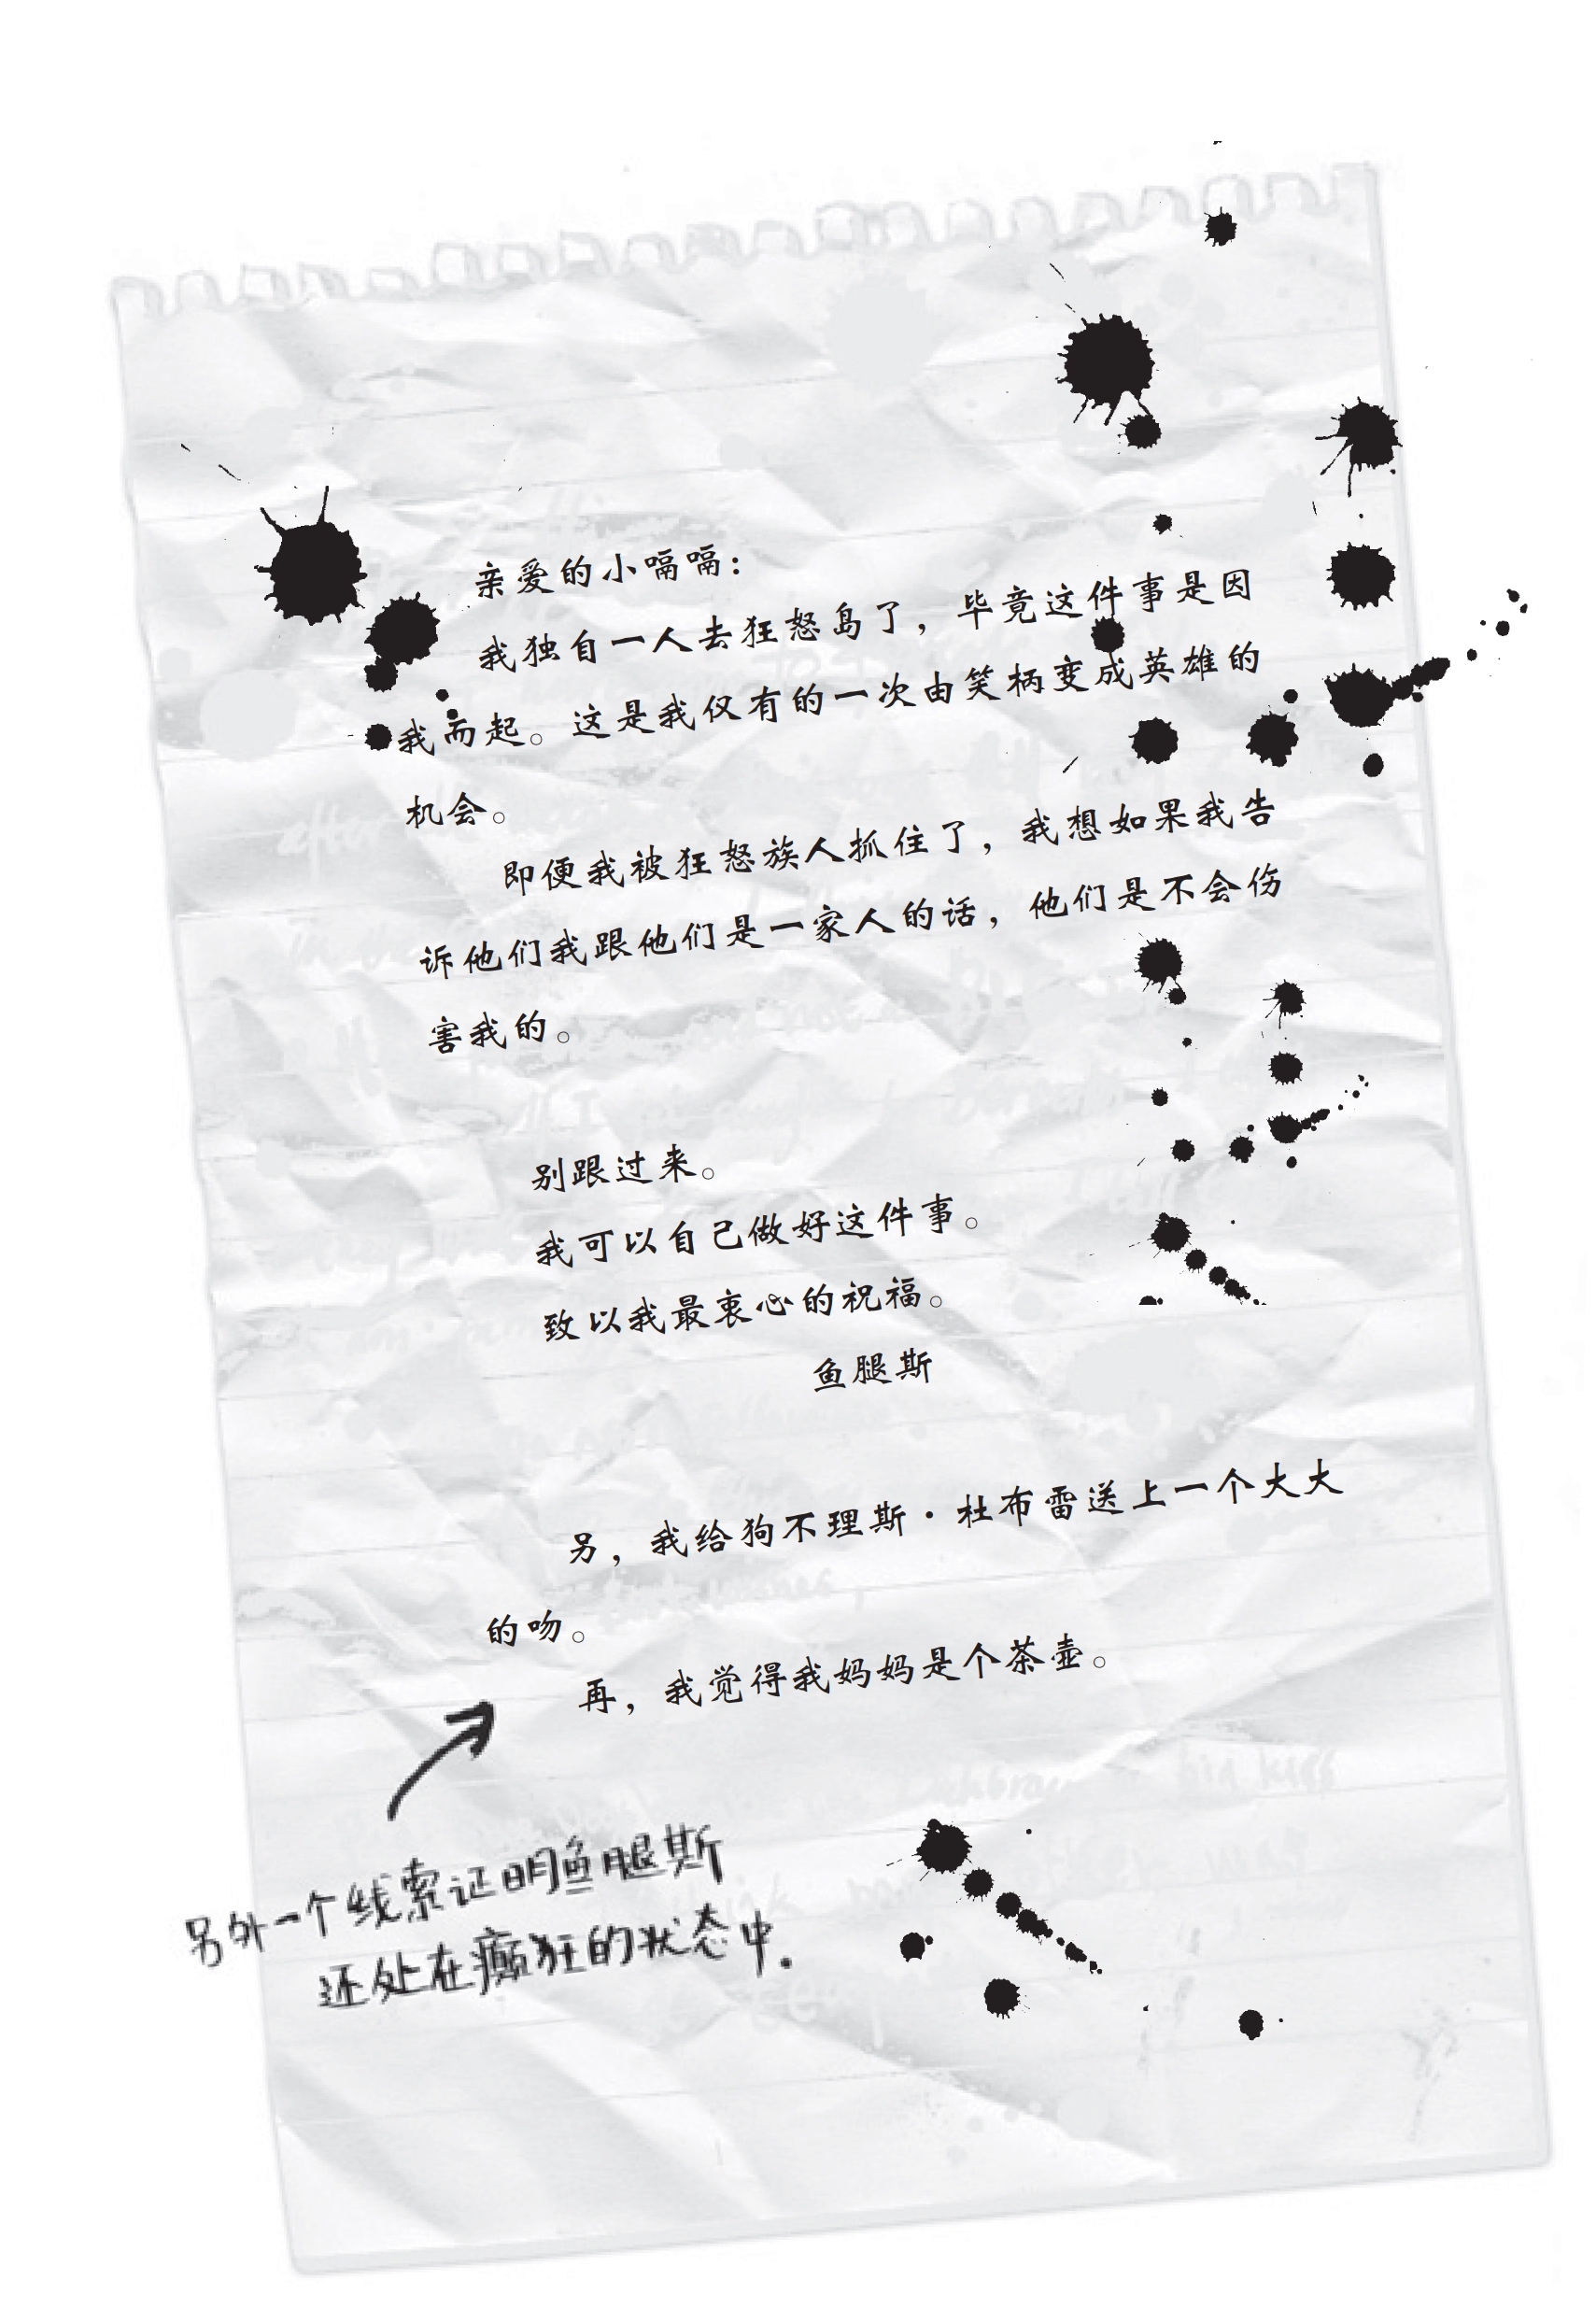 亲爱的小嗝嗝：
我独自一人去狂怒岛了，毕竟这件事是因
我而起。这是我仅有的一次由笑柄变成英雄的
机会。
即便我被狂怒族人抓住了，我想如果我告
诉他们我跟他们是一家人的话，他们是不会伤
害我的。
别跟过来。
我可以自己做好这件事。
致以我最衷心的祝福。
鱼腿斯
另，我给狗不理斯·杜布雷送上一个大大
的吻。
再，我觉得我妈妈是个茶壶。
另外一个线索证明鱼腿斯
还处在癫狂的状态中.